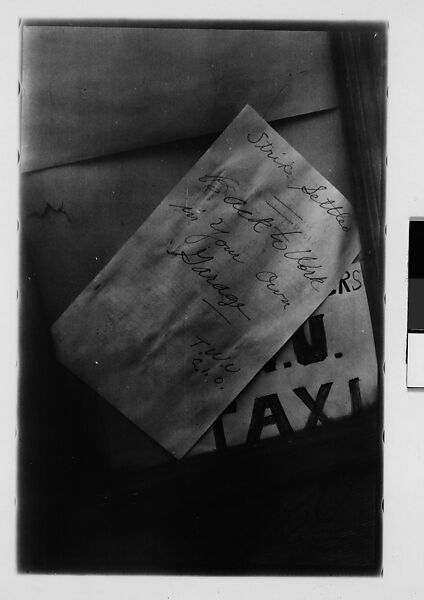 Strike Settled
Back to Work
in Your Own
Garage
T.W.U
C.I.O.
ERS
.U.
TAXI